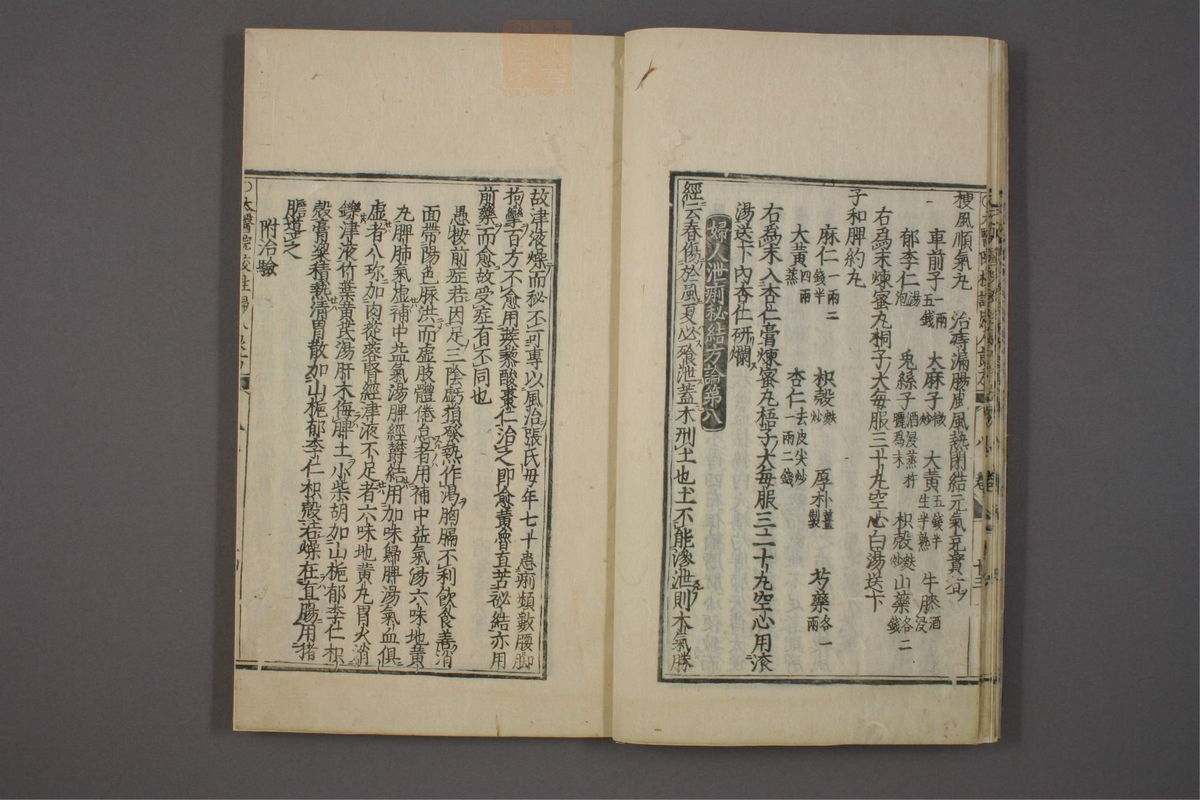 梗風順氣丸　治痔漏腸風風熱閉結元氣充實宜
車前子一兩五錢　大麻子微炒　大黃五錢半生半熟　牛膝酒浸
郁李仁湯泡　兎絲子酒浸蒸杵曬爲末　枳殼麩炒　山藥各二錢
右爲末煉蜜丸桐子大每服三十丸空心白湯送下
子和脾約丸
麻仁一兩二錢半　枳殼麩炒　厚朴薑製　芍藥各一兩
大黃四兩蒸　杏仁去皮尖炒一兩二錢
右爲末入杏仁膏煉蜜丸梧子大每服三二十丸空心用滚
湯送下內杏仁研爛
婦人泄痢秘結方論第八
經云春傷於風夏必飧泄蓋木刑土也土不能滲泄則木氣勝
故津液燥而秘不可專以風治張氏毋年七十患痢類數腰脚
拘攣百方不愈用蒺藜酸棗仁治之即愈黃魯直苦祕結亦用
前藥而愈故受症有不同也
愚按前症若因足三陰虧損發熱作渴胸膈不利飲食善消
面帶陽色脉洪而虛肢體倦怠者用補中益氣湯六味地黃
丸脾肺氣虛補中益氣湯脾經欝結用加味歸脾湯氣血俱
虛者八珎加肉蓯蓉腎經津液不足者六味地黃丸胃火消
鑠津液竹葉黃芪湯肝木侮脾土小柴胡加山梔郁李仁枳
殼膏粱積熱清胃散加山梔郁李仁枳殼若燥在直腸用猪
膽導之
附治驗
太醫院校註婦人良方